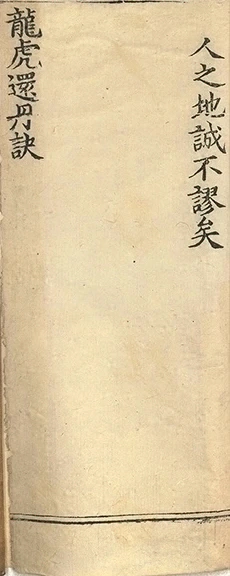 人之地誠不謬矣
龍虎還丹訣